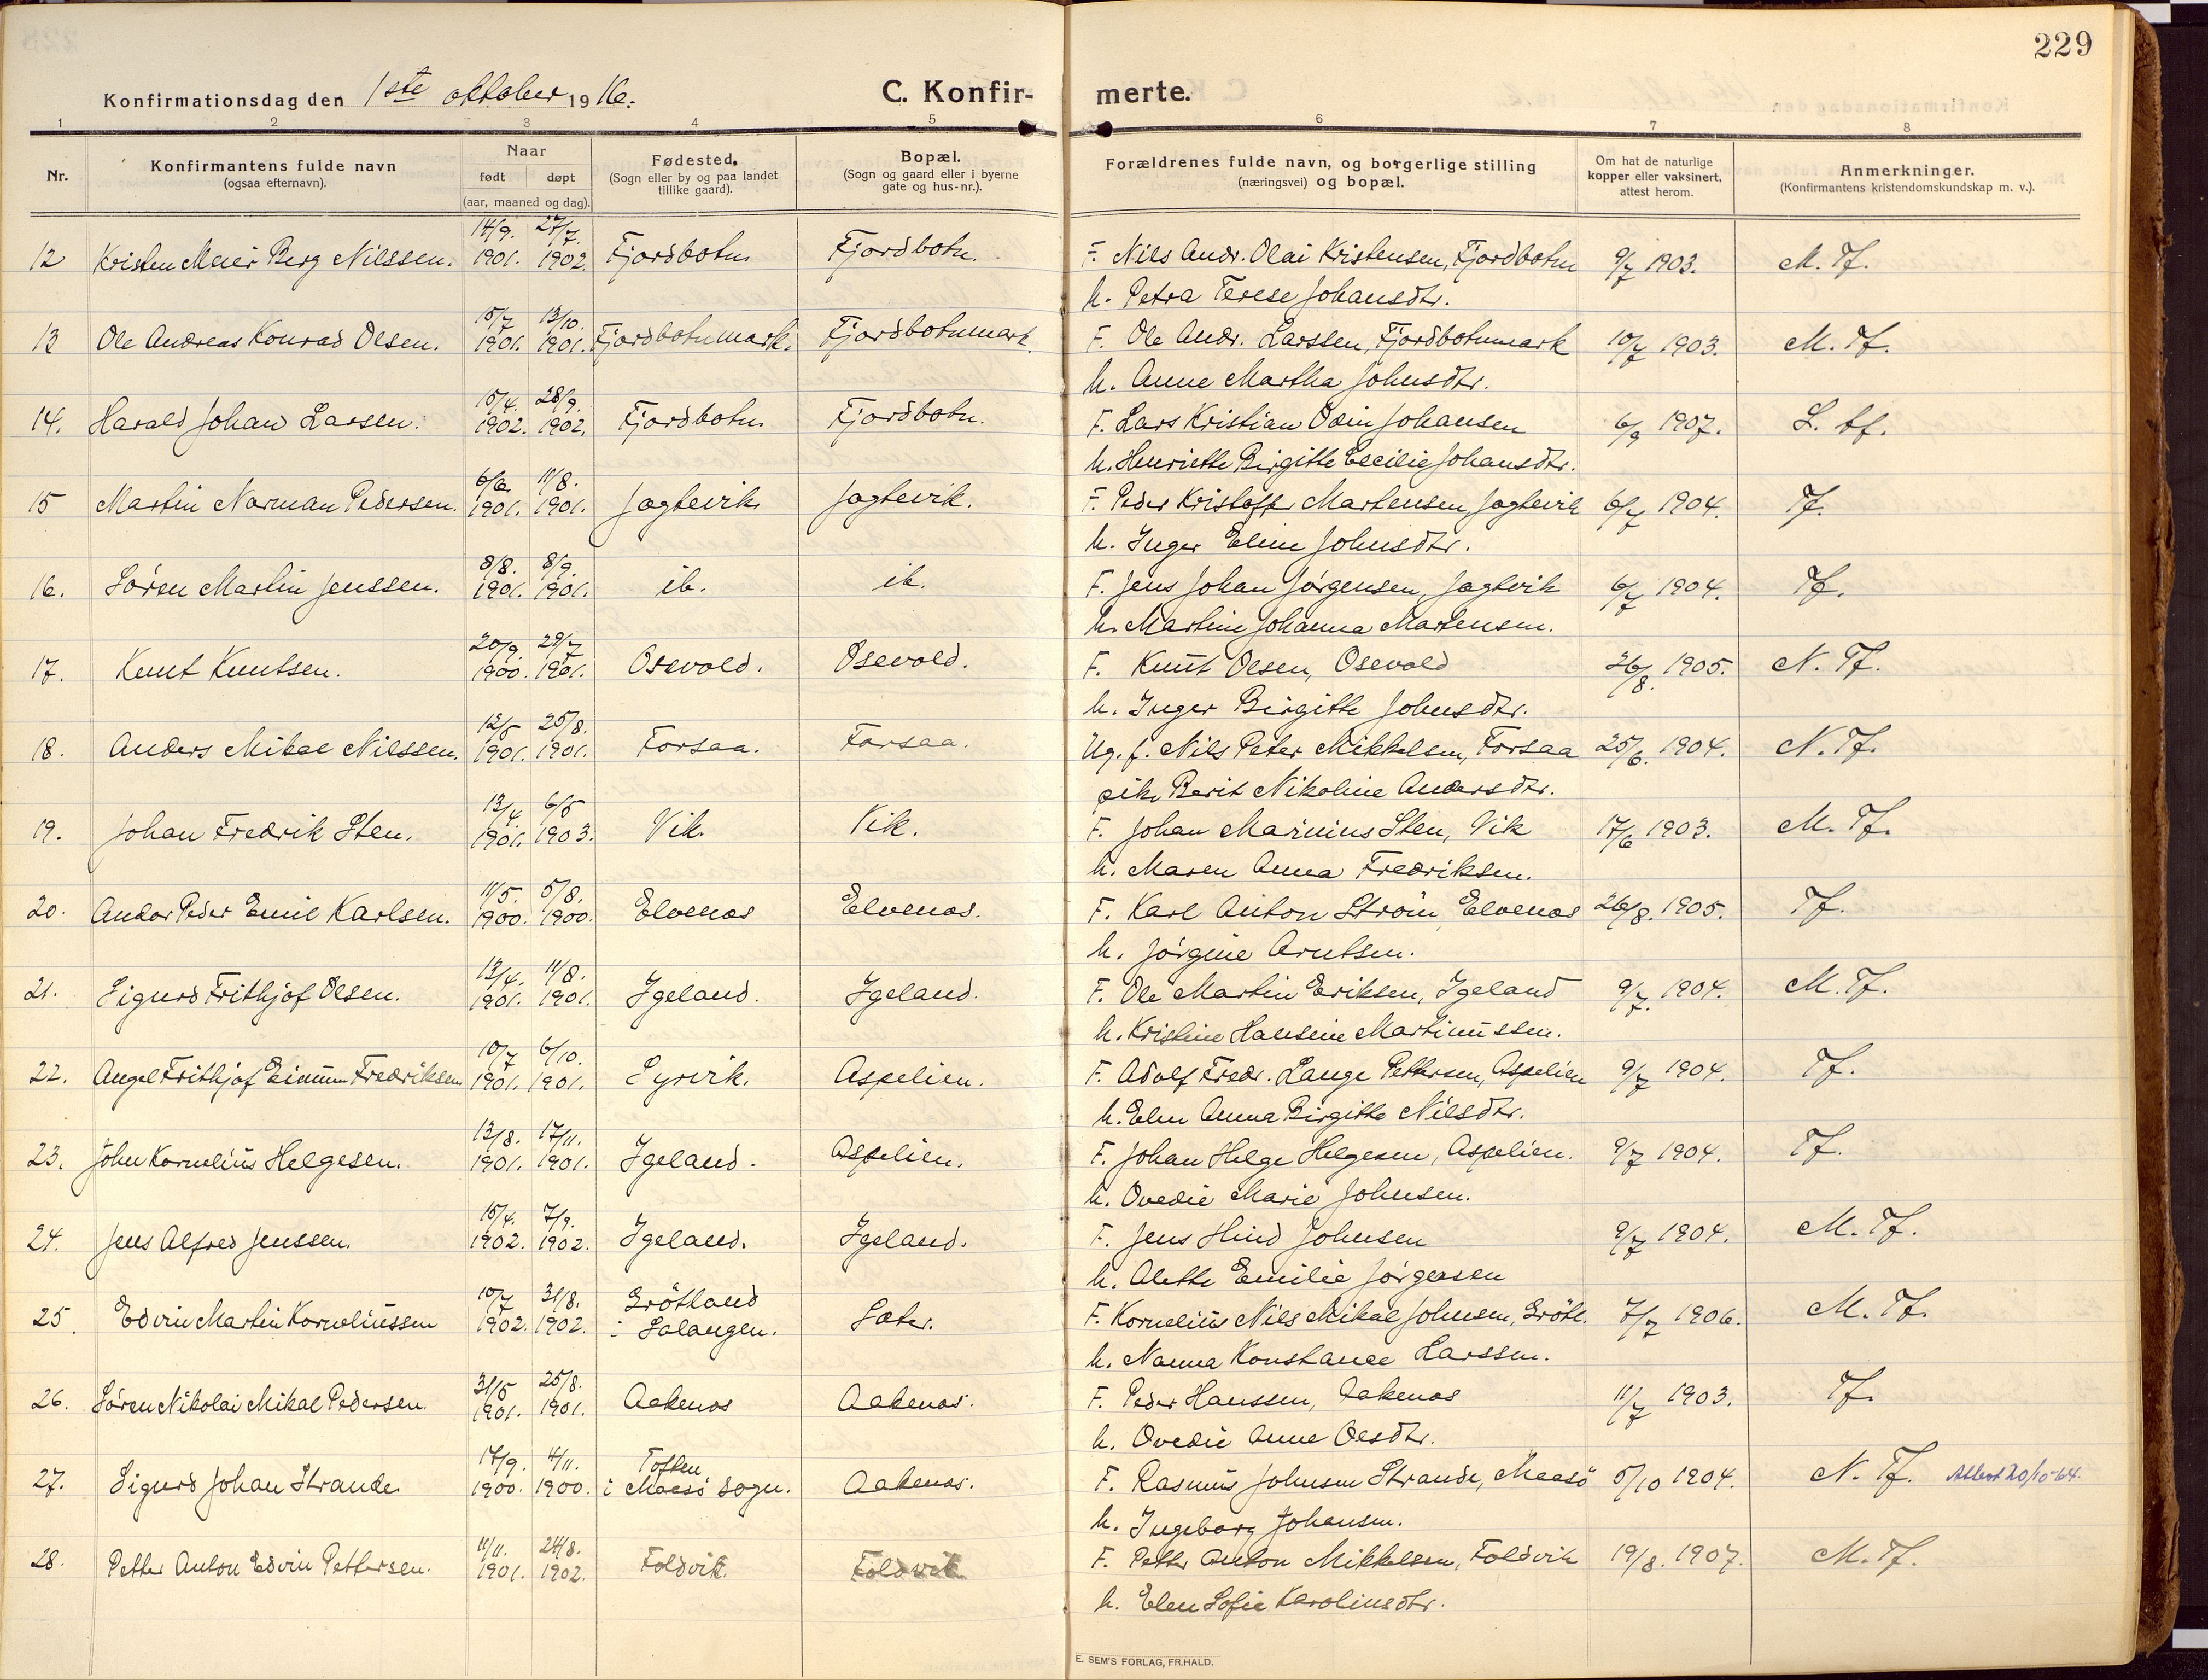 229
Konfirmationsdag den 1ste oktober 1916.
C. Konfir-merte.
1 2 3 4 5 6 7 8
Nr. Konfirmantens fulde navn (ogsaa efternavn). Naar født døpt (aar, maaned og dag). Fødested. (Sogn eller by og paa landet tillike gaard). Bopæl. (Sogn og gaard eller i byerne gate og hus-nr.). Forældrenes fulde navn, og borgerlige stilling (næringsvei) og bopæl. Om hat de naturlige kopper eller vaksinert, attest herom. Anmerkninger. (Konfirmantens kristendomskundskap m. v.).
12 Kristen Meier Berg Nilssen. 14/9. 1901. 27/7. 1902. Fjordbotn Fjordbotn. F. Nils Andr. Olai Kristensen, Fjordbotn 9/7 1903. M. Tf.
h. Petra Terese Johansdtr.
13 Ole Andreas Konrad Olsen. 15/7 1901. 13/10. 1901. Fjordbotnmark. Fjordbotnmark. F. Ole Andr. Larssen, Fjordbotnmark 10/7 1903. M. Tf.
h. Anne Martha Johnsdtr.
14. Harald Johan Larsen. 15/4. 1902. 28/9. 1902. Fjordbotn. Fjordbotn. F. Lars Kristian Odin Johansen 6/9 1907.
h. Henriette Birgitte Cecilie Johansdtr.
15 Martin Norman Pedersen. 6/6. 1901. 11/8. 1901. Jagtevik Jagtevik. F. Peder Kristoffer Martensen, Jagtevik 6/7 1904. Tf.
h. Inger Eline Johnsdtr.
16. Søren Martin Jenssen. 8/8. 1901. 8/9. 1901. ib. ib. F. Jens Johan Jørgensen, Jagtvik 6/7 1904. Tf.
h. Martine Johanna Martensen.
17. Knut Knutsen. 20/9. 1900. 29/7 1901. Osevold. Osevold. F. Knut Olsen, Osevold 26/8. 1905. N. Tf.
h. Inger Birgitte Johnsdtr.
18. Anders Mikal Nilssen. 12/5 1901. 25/8. 1901. Forsaa. Forsaa. Ug. f. Nils Peter Mikkelsen, Forsaa 25/6. 1904. N. Tf.
pike Berit Nikoline Andersdtr.
19. Johan Fredrik Sten. 13/4 1901. 6/5 1903. Vik. Vik. F. Johan Marinius Sten, Vik 17/6 1903. M. Tf.
h. Maren Anna Fredriksen.
20. Andor Peder Emil Karlsen. 11/5. 1900. 5/8. 1900. Elvenes Elvenes. F. Karl Anton Strøm, Elvenes 26/8. 1905. Tf.
h. Jørgine Arntsen.
21. Sigurd Frithjof Olsen. 13/4. 1901. 11/8. 1901. Igeland. Igeland. F. Ole Martin Eriksen, Igeland 9/7. 1904. M. Tf.
h. Kristine Hansine Martinussen.
22. Angel Frithjof Fredriksen 10/7 1901. 6/10. 1901. Syrvik. Aspelien. F. Adolf Fredr. Lange Pettersen, Aspelien 9/7 1904. Tf.
h. Elen Anna Birgitte Nilsdtr.
23. John Kornelius Helgesen. 13/8. 1901. 17/11. 1901. Igeland. Aspelien. F. Johan Helge Helgesen, Aspelien. 9/7 1904. Tf.
h. Ovedie Marie Johnsen.
24. Jens Alfred Jenssen. 15/4. 1902. 7/9. 1902. Igeland. Igeland. F. Jens Hind Johnsen 9/7 1904. M. Tf.
h. Alette Emilie Jørgensen
25. Edvin Martin Korneliussen 10/7 1902. 31/8. 1902. Grøtland i Salangen. Sæter. F. Kornelius Nils Mikal Johnsen, Grøtl. 7/7 1906. M. Tf.
h. Nanna Konstance Larssen.
26. Søren Nikolai Mikal Pedersen. 31/5 1901. 25/8. 1901. Aakenes Aakenes. F. Peder Hanssen, Aakenes 11/7 1903. Tf.
h. Ovedie Anne Olsdtr.
27. Sigurd Johan Strande 17/9. 1900. 4/11. 1900. Toften i Maasø sogn. Aakenes. F. Rasmus Johnsen Strande, Maasø 5/10 1904. N. Tf. Attest 20/10-64.
h. Ingeborg Johansen.
28. Petter Anton Edvin Pettersen. 11/11. 1901. 24/8. 1902. Foldvik. Foldvik F. Petter Anton Mikkelsen, Foldvik 19/8. 1907. M. Tf.
h. Elen Sofie Karolinsdtr.
E. SEM'S FORLAG, FR.HALD.